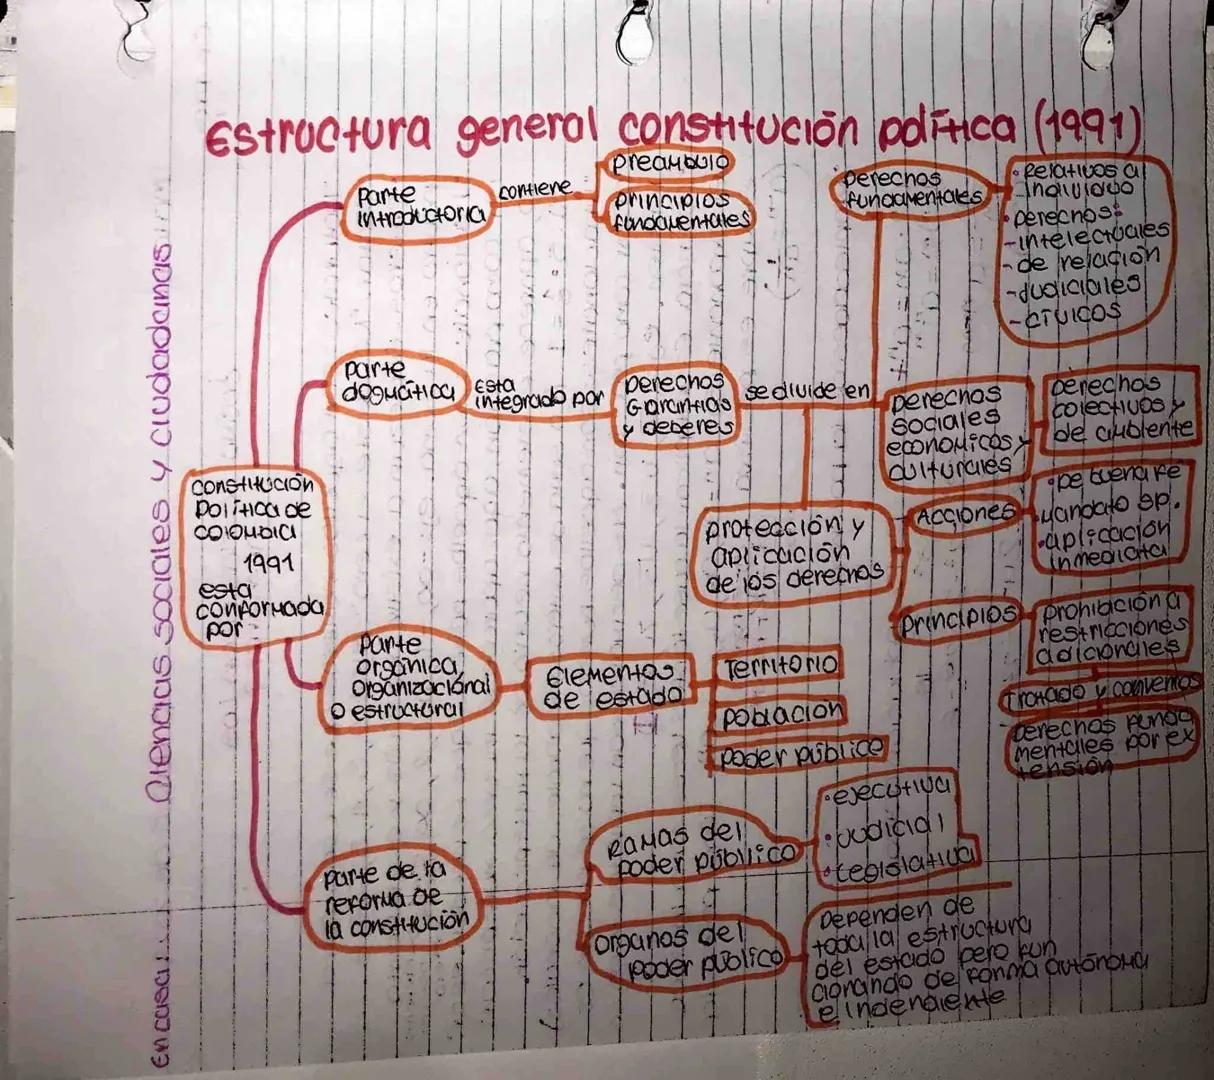 Estructura general constitución política (1991)
Ciencias sociales y ciudadanas
En casa:
constitución
política de
colombia
1991
esta
conformada
por
Parte
introductoria
contiene
preambulo
principios
fundamentales
parte
dogmática
Esta
integrado por
Derechos
Garantias
y deberes
se divide en
Derechos
fundamentales
• Relativos al
individuo
• Derechos:
- intelectuales
- de relación
- Judiciales
- cívicos
Derechos
sociales
economicos y
culturales
Derechos
colectivos y
de ambiente
protección y
aplicación
de los derechos
Acciones
• De buena fe
• Mandato sp.
• aplicación
inmediata
Principios
prohibición a
restricciones
adicionales
Tratado y convenios
Derechos funda
mentales por ex
tensión
Parte
orgánica,
organizacional
o estructural
Elementos
de estado
Territorio
población
poder público
parte de la
reforma de
la constitución
Ramas del
poder público
• ejecutiva
• Judicial
• legislativa
organos del
poder público
Dependen de
toda la estructura
del estado pero fun
cionando de forma autónoma
e indendiente